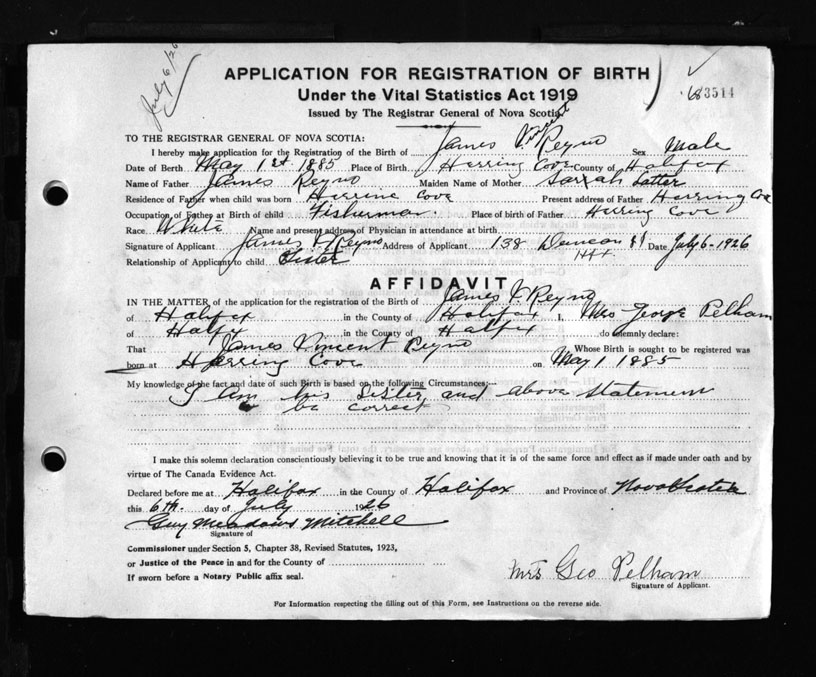 July 6/26
APPLICATION FOR REGISTRATION OF BIRTH
Under the Vital Statistics Act 1919
63514
Issued by The Registrar General of Nova Scotia
TO THE REGISTRAR GENERAL OF NOVA SCOTIA:
I hereby make application for the Registration of the Birth of James Vincent Reyno Sex Male
Date of Birth May 1st 1885 Place of Birth Herring Cove County of Halifax
Name of Father James Reyno Maiden Name of Mother Sarrah
Residence of Father when child was born Herrine Cove Present address of Father Herring Cove
Occupation of Father at Birth of child Fisherman. Place of birth of Father Herring Cove
Race White Name and present address of Physician in attendance at birth
Signature of Applicant James V Reyno Address of Applicant 138 Duncan St Date July 6-1926
Hfx
Relationship of Applicant to child Sister
AFFIDAVIT
IN THE MATTER of the application for the registration of the Birth of James V. Reyno
of Halifax in the County of Halifax I, Mrs George Pelham
of Halfx in the County of Halfax do solemnly declare:
That James Vincent Reyno Whose Birth is sought to be registered was
born at Herring Cove on May 1 1885
My knowledge of the fact and date of such Birth is based on the following Circumstances:—
I am his sister and above statement
be correct
I make this solemn declaration conscientiously believing it to be true and knowing that it is of the same force and effect as if made under oath and by
virtue of The Canada Evidence Act.
Declared before me at Halifax in the County of Halifax and Province of Nova Scotia
this 6th. day of July 1926
Guy Meadows Mitchell
Signature of
Commissioner under Section 5, Chapter 38, Revised Statutes, 1923,
or Justice of the Peace in and for the County of
If sworn before a Notary Public affix seal.
Mrs Geo Pelham
Signature of Applicant.
For Information respecting the filling out of this Form, see Instructions on the reverse side.